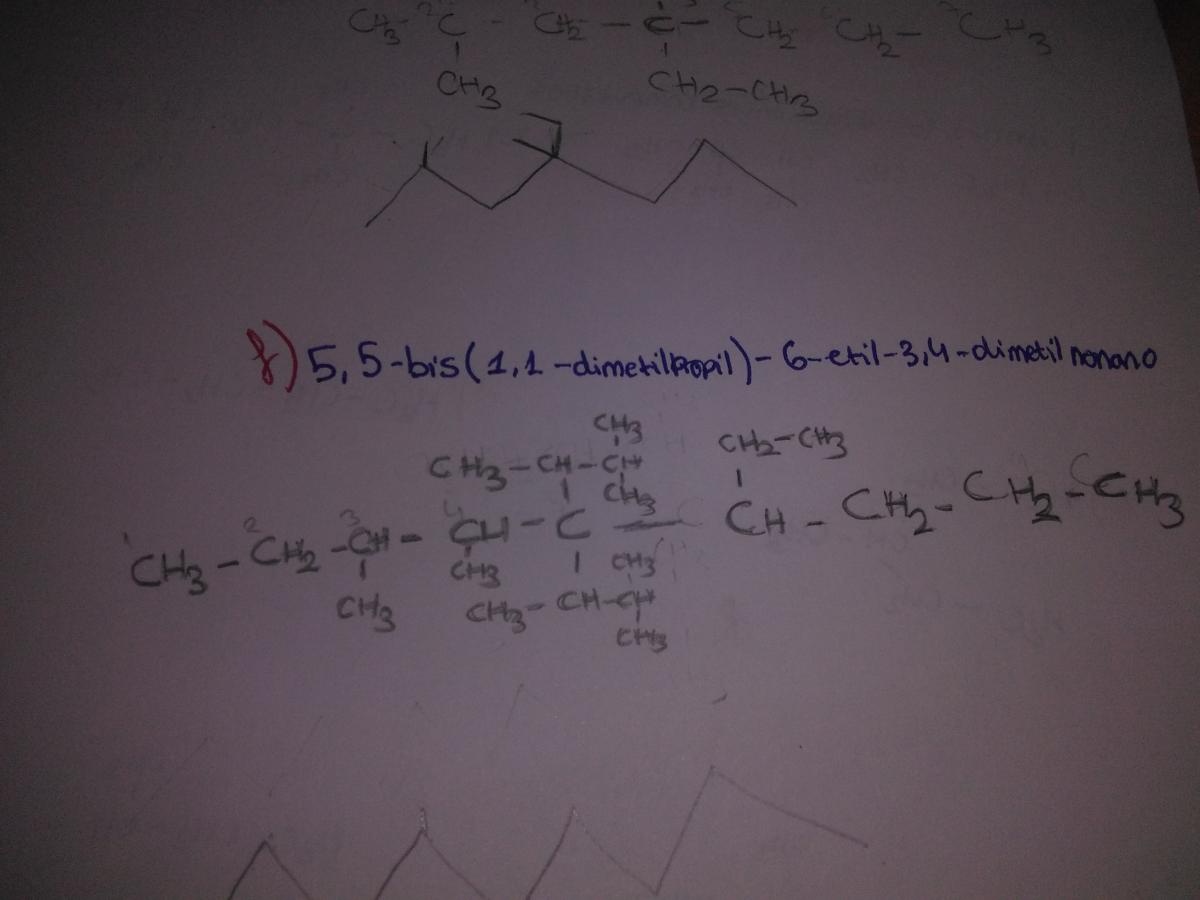 CH3 - 2C - CH2 - C - CH2 CH2 - CH3
CH3 CH2-CH3
f) 5,5-bis(1,1-dimetilpropil)-6-etil-3,4-dimetilnonano
CH3
CH3-CH-CH CH2-CH3
CH3
1CH3 - 2CH2 - 3CH - 4CH - C - CH - CH2 - CH2 - CH3
CH3 CH3
CH3 CH3- CH-CH
CH3